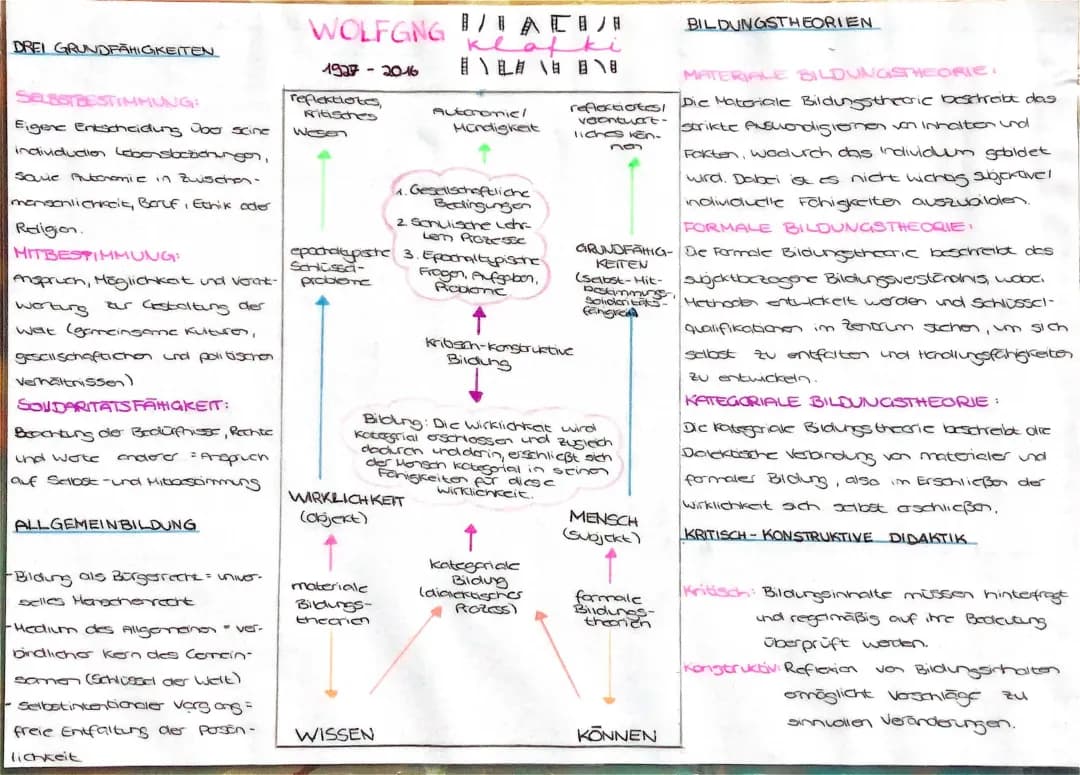 WOLFGNG
klafki
1927 - 2016
DREI GRUNDFÄHIGKEITEN
SELBSTBESTIMMUNG:
Eigene Entscheidung über seine
individuellen Lebensbeziehungen,
sowie Autonomie in Zwischen-
menschlichkeit, Beruf, Ethik oder
Religion.
MITBESTIMMUNG:
Anspruch, Möglichkeit und Verant-
wortung zur Gestaltung der
Welt (gemeinsame Kulturen,
gesellschaftlichen und politischen
Verhältnissen)
SOLIDARITÄTSFÄHIGKEIT:
Beachtung der Bedürfnisse, Rechte
und Werte anderer = Anspruch
auf Selbst- und Mitbestimmung
ALLGEMEINBILDUNG
- Bildung als Bürgerrecht = univer-
selles Menschenrecht
- Medium des Allgemeinen = ver-
bindlicher Kern des Gemein-
samen (Schlüssel der Welt)
- Selbstintentionaler Vorgang =
freie Entfaltung der Persön-
lichkeit
reflektiertes,
kritisches
Wesen
Autonomie/
Mündigkeit
reflektiertes/
verantwort-
liches Kön-
nen
1. Gesellschaftliche
Bedingungen
2 Schulische Lehr-
Lern Prozesse
3. Epochaltypische
Fragen, Aufgaben,
Probleme
epochaltypische
Schlüssel-
probleme
GRUNDFÄHIG-
KEITEN
(Selbst-Mit-
bestimmungs-,
Solidaritäts-
fähigkeit
Kritisch-konstruktive
Bildung
Bildung: Die Wirklichkeit wird
kategorial erschlossen und zugleich
dadurch und darin, erschließt sich
der Mensch kategorial in seinen
Fähigkeiten für diese
Wirklichkeit.
WIRKLICHKEIT
(objekt)
MENSCH
(Subjekt)
kategoriale
Bildung
(dialektisches
Prozess)
materiale
Bildungs-
theorien
formale
Bildungs-
theorien
WISSEN
KÖNNEN
BILDUNGSTHEORIEN
MATERIALE BILDUNGSTHEORIE:
Die Materiale Bildungstheorie beschreibt das
strikte Auswendiglernen von Inhalten und
Fakten, wodurch das Individuum gebildet
wird. Dabei ist es nicht wichtig subjektive/
individuelle Fähigkeiten auszubilden.
FORMALE BILDUNGSTHEORIE:
Die Formale Bildungstheorie beschreibt das
subjektbezogene Bildungsverständnis, wobei
Methoden entwickelt werden und Schlüssel-
qualifikationen im Zentrum stehen, um sich
selbst zu entfalten und Handlungsfähigkeiten
zu entwickeln.
KATEGORIALE BILDUNGSTHEORIE:
Die Kategoriale Bildungstheorie beschreibt die
Dialektische Verbindung von materialer und
formaler Bildung, also im Erschließen der
Wirklichkeit sich selbst erschließen.
KRITISCH-KONSTRUKTIVE DIDAKTIK
Kritisch: Bildungsinhalte müssen hinterfragt
und regelmäßig auf ihre Bedeutung
überprüft werden.
Konstruktiv: Reflexion von Bildungsinhalten
ermöglicht Vorschläge zu
sinnvollen Veränderungen.